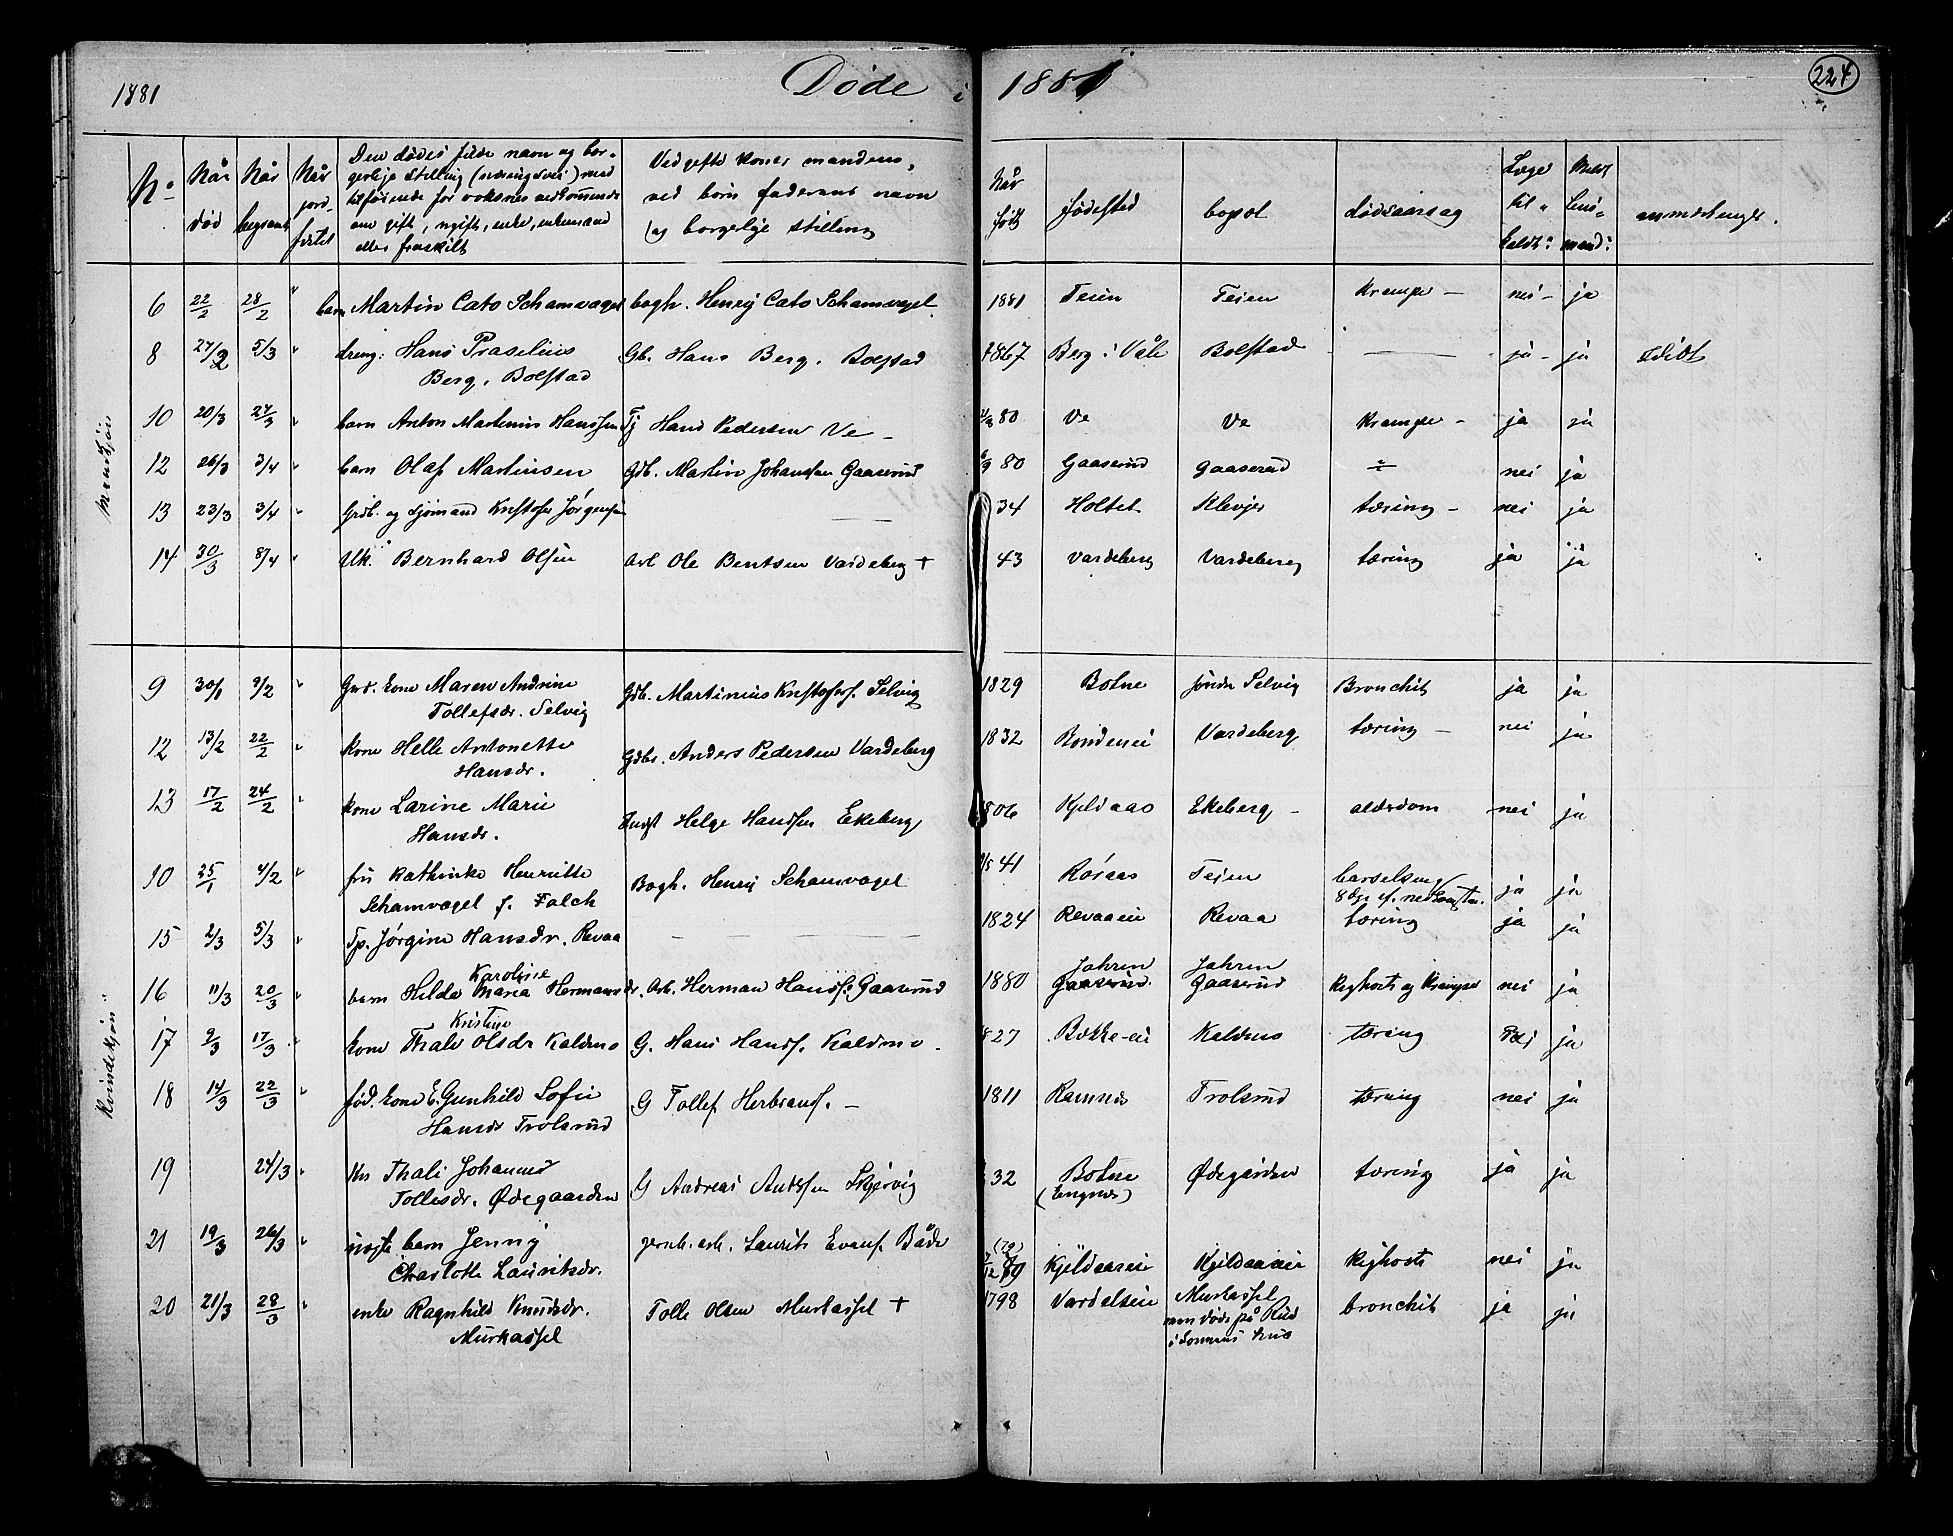 1881 Døde i 1881 224
No
Når død
Når begravet
Når jord-fæstet
Den dødes fulde navn og bor-
gerlige stilling (næringsvei) med
tilføiende for voksnes vedkommende
om gift, ugift, enke, enkemand
eller fraskilt
Ved gifte koner mandens,
ved børn faderens navn
og borgerlige stilling
Når født
fødested
bopæl
dødsaarsag
Læge til-kaldt?
anmerkninger.
Mandkjøn
6 22/2 28/2 " barn Martin Cato Schamvogel bogh. Henrij Cato Schamvogel 1881 Teien Teien Krampe — nei - ja
8 27/2 5/3 " dreng: Hans Berg, Bolstad Gb. Hans Berg. Bolstad 1867 Berg i Våle Bolstad — ja - ja Idiot
10 20/3 27/3 " barn Anton Martinius Hanssen Tj Hans Pedersen Ve - 80 Ve Ve Krampe - ja ja
12 26/3 3/4 " barn Olaf Martinsen Gdb. Martin Johansen Gaaserud 80 Gaaserud Gaaserud " nei ja
13 23/3 3/4 " Grdb. og Sjømand Kristofer Jørgensen — 34 Holtet Klevjer tæring - nei ja
14 30/3 8/4 " Uk. Bernhard Olsen Arb Ole Bentsen Vardeberg + 43 Vardeberg Vardeberg tæring ja ja
Kvindekjøn
9 30/1 9/2 " Grd. kone Maren Andrine
Tollefsdr. Selvig Gdb. Martinius Kristofers. Selvig 1829 Botne søndre Selvig Bronchit ja ja
12 13/2 22/2 " kone Helle Antonette
Hansdr. Gdbr. Anders Pedersen Vardeberg 1832 Vardeberg tæring — nei ja
13 17/2 24/2 " kone Larine Marie
Hansdr. Helge Hansen Ekeberg 1806 Kjeldaas Ekeberg - alderdom nei ja
10 25/1 4/2 " fru Kathinka Henriette
Schamvogel f. Falch Bogh. Henrij Schamvogel 41 Røraas Teien barselseng
8 dge ef. nedkomsten. ja ja
15 2/3 5/3 " Jørgine Hansdr. Revaa — 1824 Revaaeie Revaa tæring ja ja
16 11/3 20/3 barn Hilda Karoline Maria Hermansdr. Arb. Herman Hans. Gaaserud 1880 Jahren Gaaserud. Jahren Gaaserud Kighoste og Krampe nei ja
17 9/3 17/3 " kone Thale Kristine Olsdr Kaldmo G. Hans Hans. Kaldmo. 1827 Bakke-eie Kaldmo tæring nei ja
18 14/3 22/3 " fød. kone E. Gunhild Sofie
Hansdr Trolsrud G Tollef Herbrands. — 1811 Ramnes Trolsrud tæring nei ja
19 24/3 " kn Thali Johanne
Tollesdr. Ødegaarden G Andreas Anderssen Skjærvig 32 Botne
(Tengnes) Ødegården tæring ja ja
21 19/3 26/3 " uægte barn Jenny
Charlotte Lauritsdr. jernb. arb. Laurits Evans. Både (79) 7/12 80 Kjeldaaseie Kjeldaaseie Kighoste nei ja
20 21/3 28/3 " enke Ragnhild Knudsdr.
Murkassel Tolle Olsen Murkassel + 1798 Murkassel
men døde på Rud
i Sønnens hus bronchit ja ja